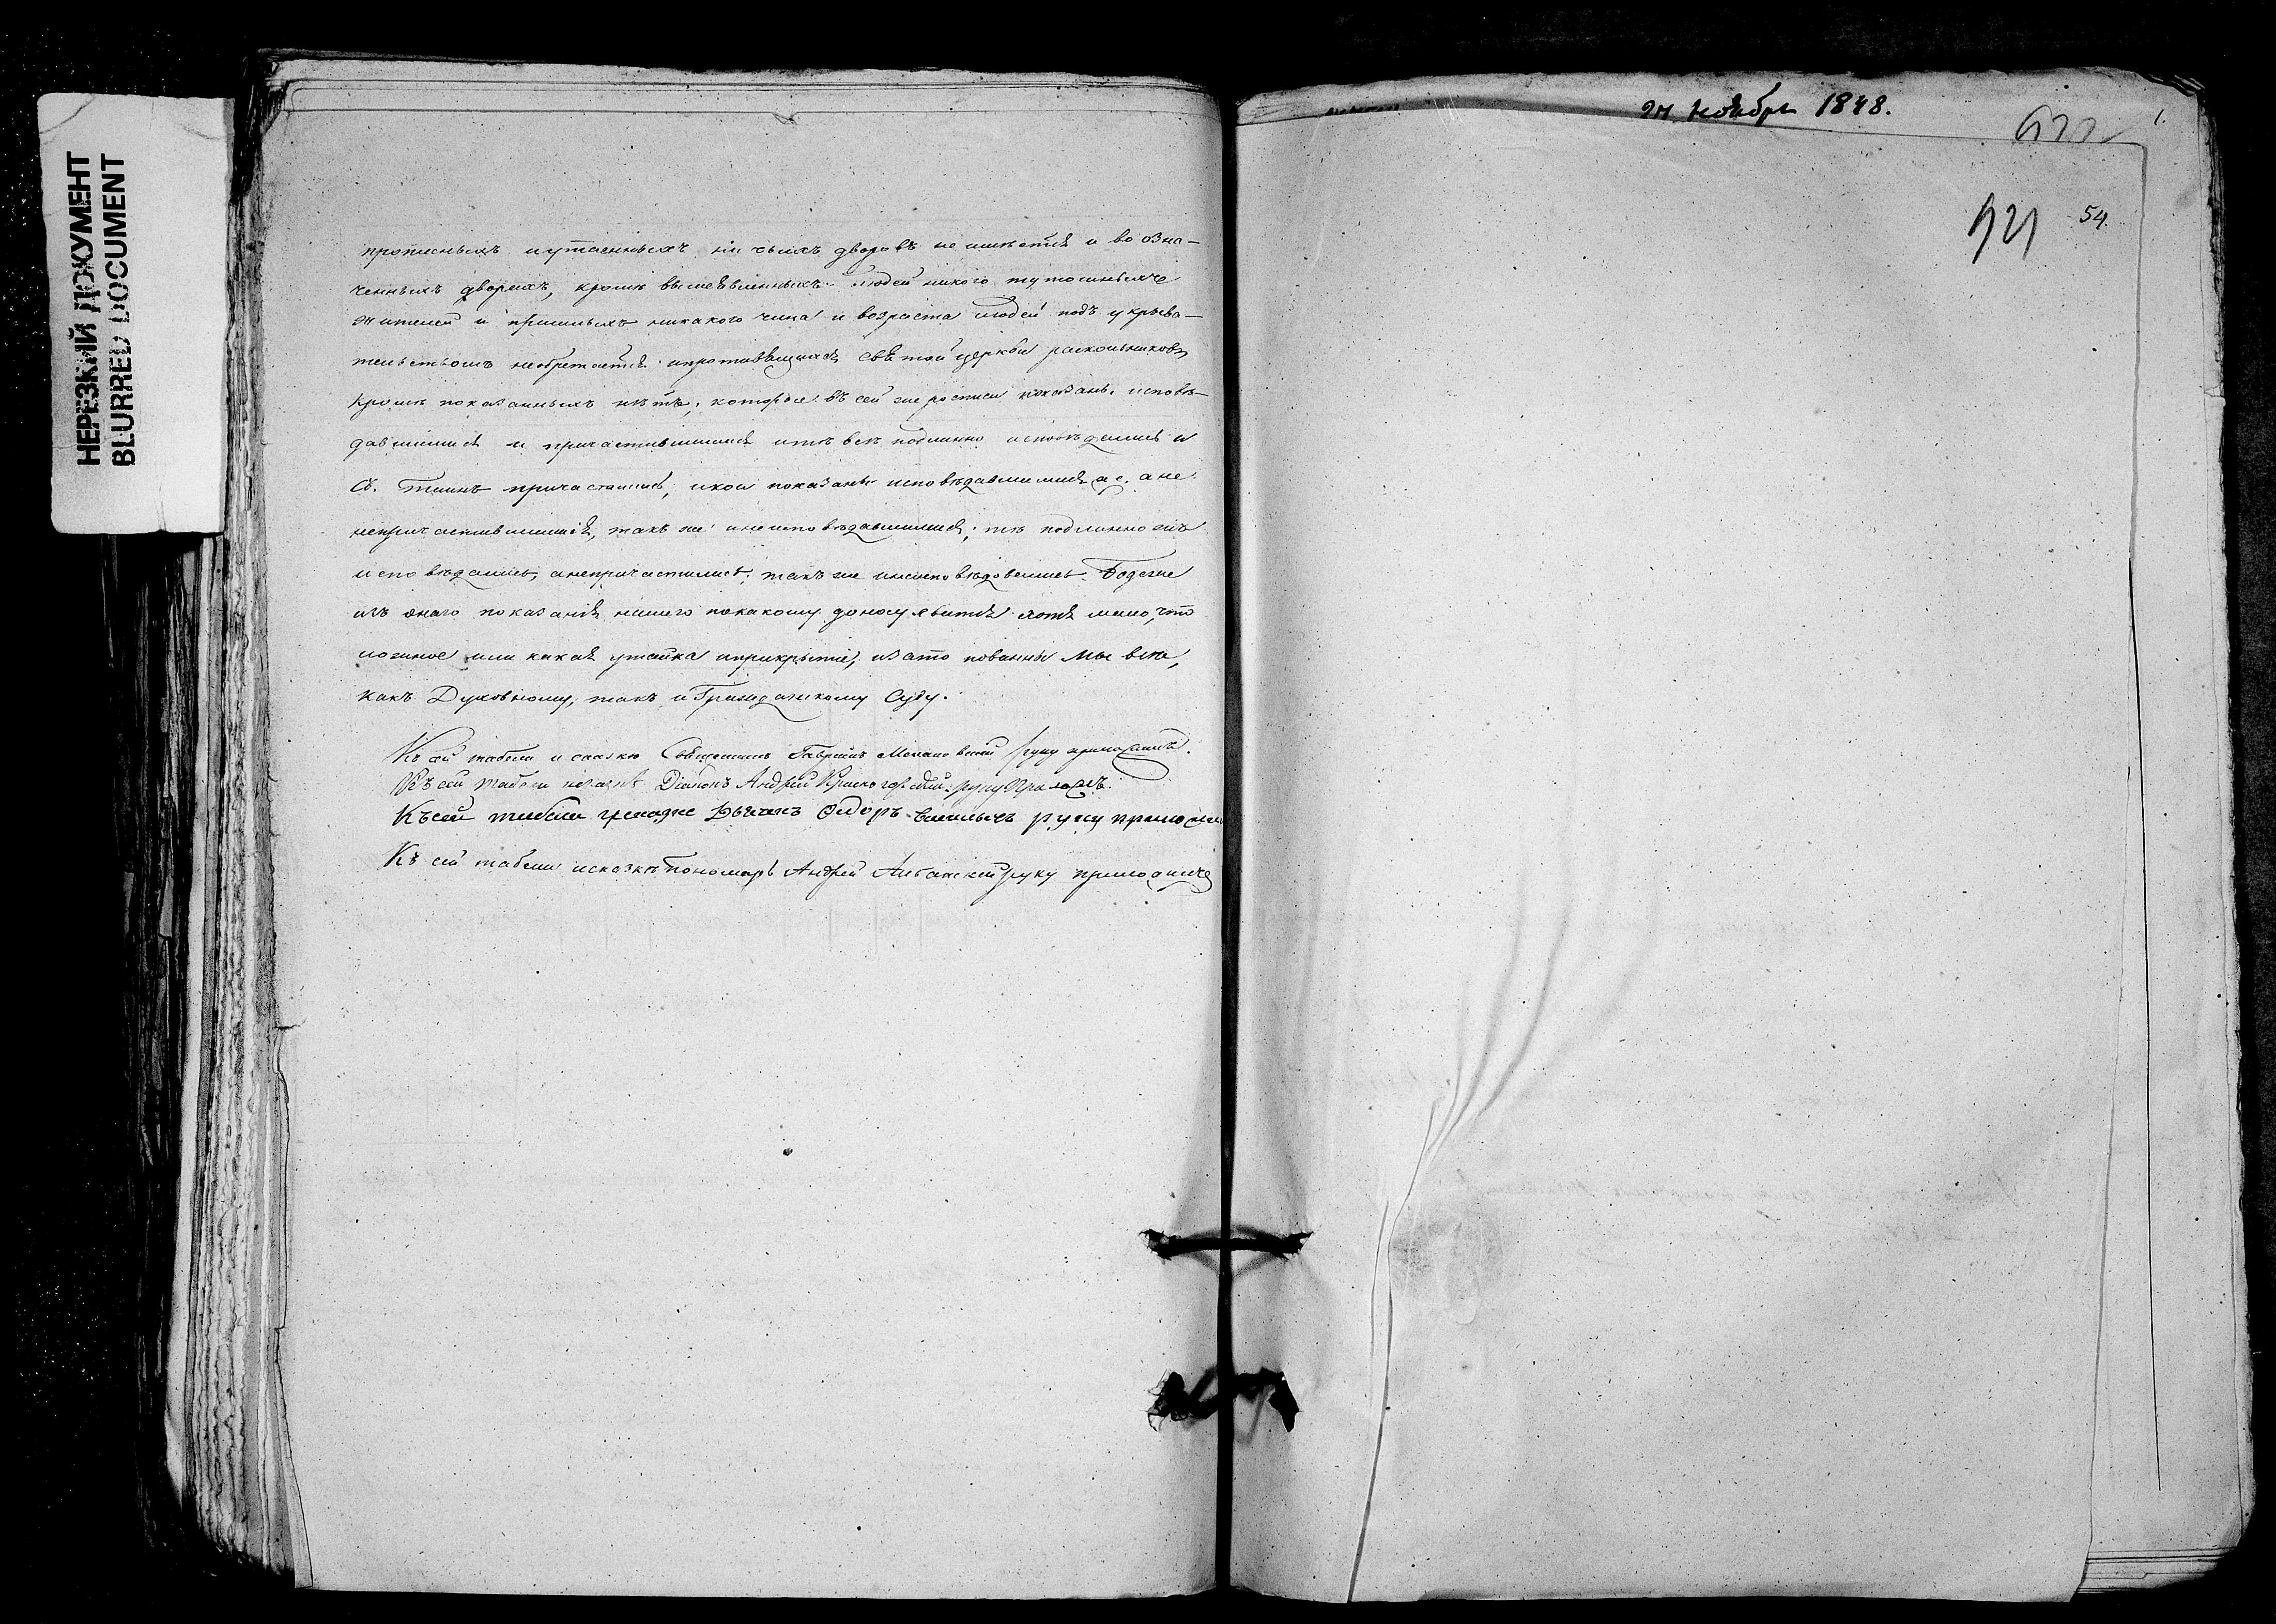 НЕРЕЗКИЙ ДОКУМЕНТ
BLURRED DOCUMENT
прописныхъ и утаенныхъ ни чьихъ дворовъ не имѣется и во озна-
ченныхъ дворехъ, кромѣ вышеявленныхъ людей никого тутошныхъ
жителей и пришлыхъ никакого чина и возраста людей подъ укрыва-
тельствомъ необретается и противящихся святой церкви раскольниковъ
кромѣ показанныхъ нѣтъ, которые въ сей же росписи показаны исповѣ-
давшимися и причастившимися и тѣ всѣ подлинно исповѣдались и
Св. Таинъ причастились, и кои показаны исповѣдавшимися а не
непричастившимися, такъ же и неисповѣдавшимися; тѣ подлинно жъ
исповѣдались, а непричастились; такъ же и неисповѣдовались. Буде же
изъ онаго показанія нашего по какому доносу явится хотя мало, что
ложное или какая утайка и прикрытіе, и за то повинны мы всѣ,
какъ Духовному, такъ и Гражданскому Суду.
Къ сей табели и сказкѣ Священникъ Гавріилъ руку приложилъ.
Къ сей табели и сказкѣ Діаконъ Андрей Красногорскій руку приложилъ.
Къ сей табели Дьячекъ Ѳидоръ руку приложилъ
Къ сей табели и сказкѣ Пономарь Андрей руку приложилъ
Ноября 1848.
54.